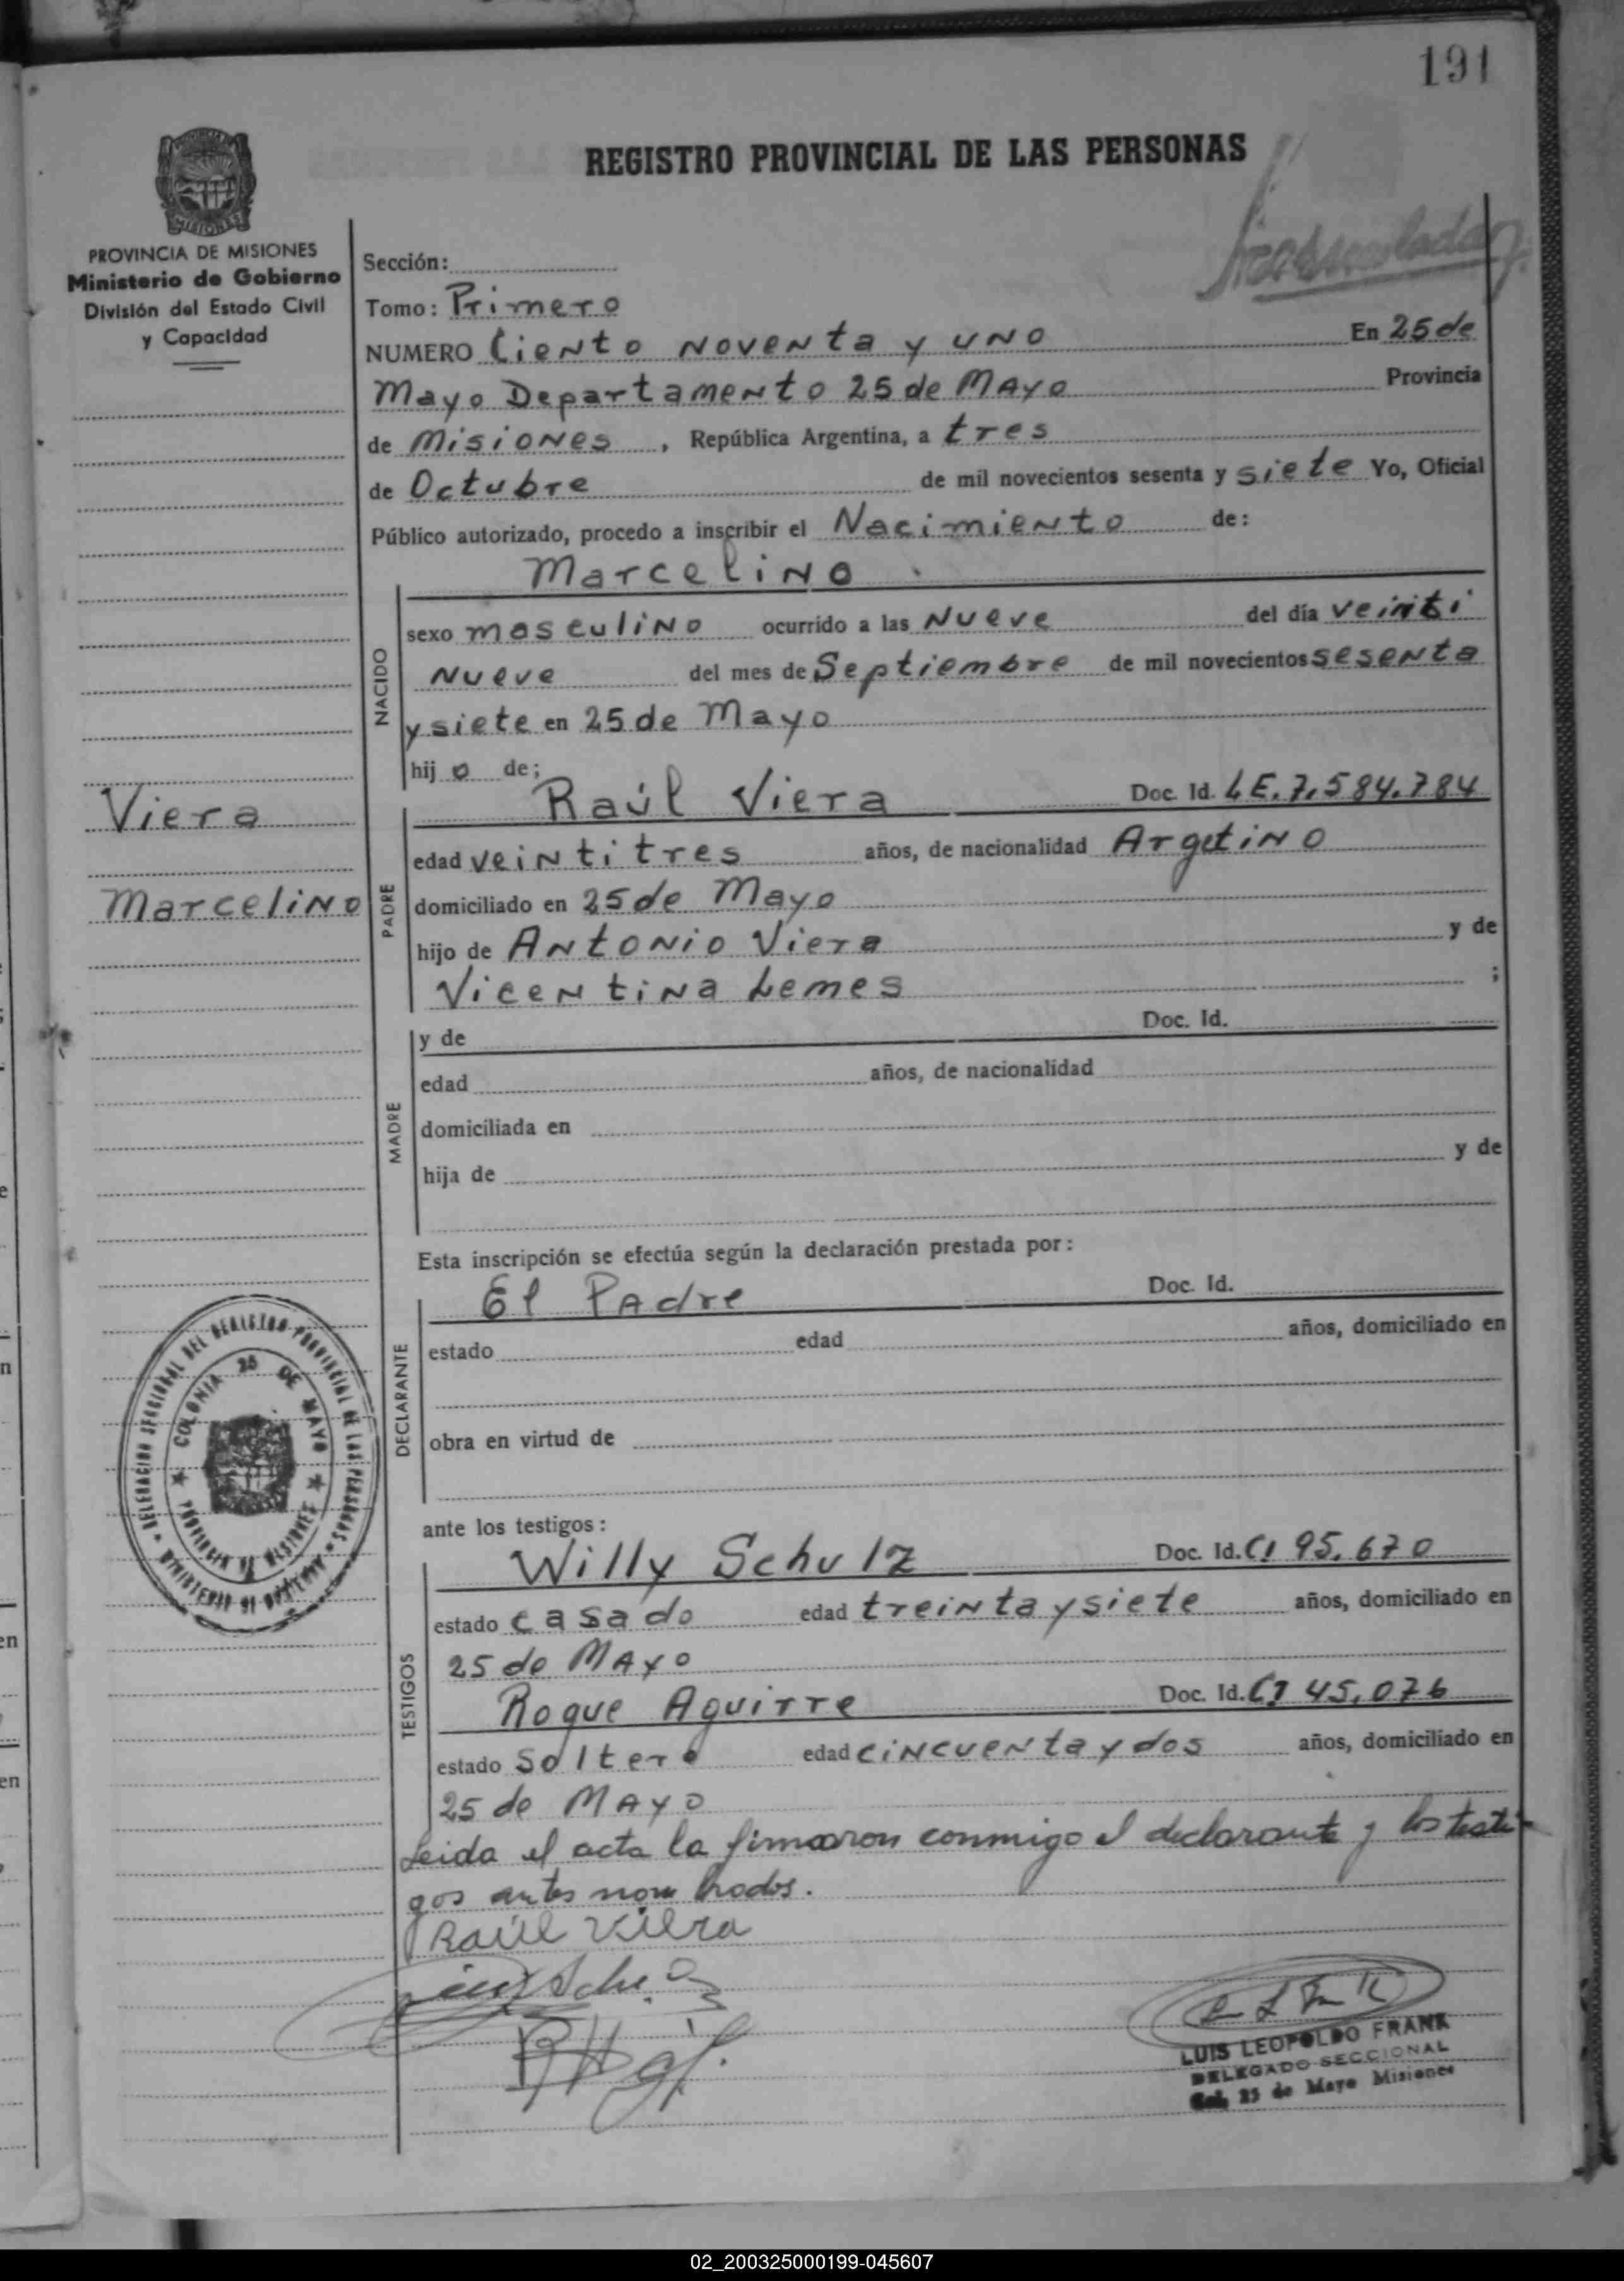 191
REGISTRO PROVINCIAL DE LAS PERSONAS
MISIONES
PROVINCIA DE MISIONES
Ministerio de Gobierno
División del Estado Civil
y Capacidad
Sección:
Tomo: Primero
NUMERO Ciento Noventa y uno En 25 de
Mayo Departamento 25 de Mayo Provincia
de Misiones, República Argentina, a tres
de Octubre de mil novecientos sesenta y siete Yo, Oficial
Público autorizado, procedo a inscribir el Nacimiento de:
Marcelino
NACIDO
sexo masculino ocurrido a las Nueve del día veinti
Nueve del mes de Septiembre de mil novecientos sesenta
y siete en 25 de Mayo
hijo de;
Viera
Marcelino
Raúl Viera Doc. Id. LE. 7.584.784
PADRE
edad veintitres años, de nacionalidad Argetino
domiciliado en 25 de Mayo
hijo de Antonio Viera y de
Vicentina Lemes ;
MADRE
y de Doc. Id.
edad años, de nacionalidad
domiciliada en
hija de y de
Esta inscripción se efectúa según la declaración prestada por:
DECLARANTE
El Padre Doc. Id.
estado edad años, domiciliado en
obra en virtud de
DELEGACION SECCIONAL DEL REGISTRO PROVINCIAL DE LAS PERSONAS
MINISTERIO DE GOBIERNO
COLONIA 25 DE MAYO
PROVINCIA DE MISIONES
ante los testigos:
TESTIGOS
Willy Schulz Doc. Id. CI 95.670
estado casado edad treinta y siete años, domiciliado en
25 de Mayo
Roque Aguirre Doc. Id. CI 45.076
estado Soltero edad cincuenta y dos años, domiciliado en
25 de Mayo
Leida el acta la firmaron conmigo el declarante y los testi-
gos antes nombrados.
Raúl Viera
LUIS LEOPOLDO FRANK
DELEGADO SECCIONAL
Col. 25 de Mayo Misiones
02_200325000199-045607